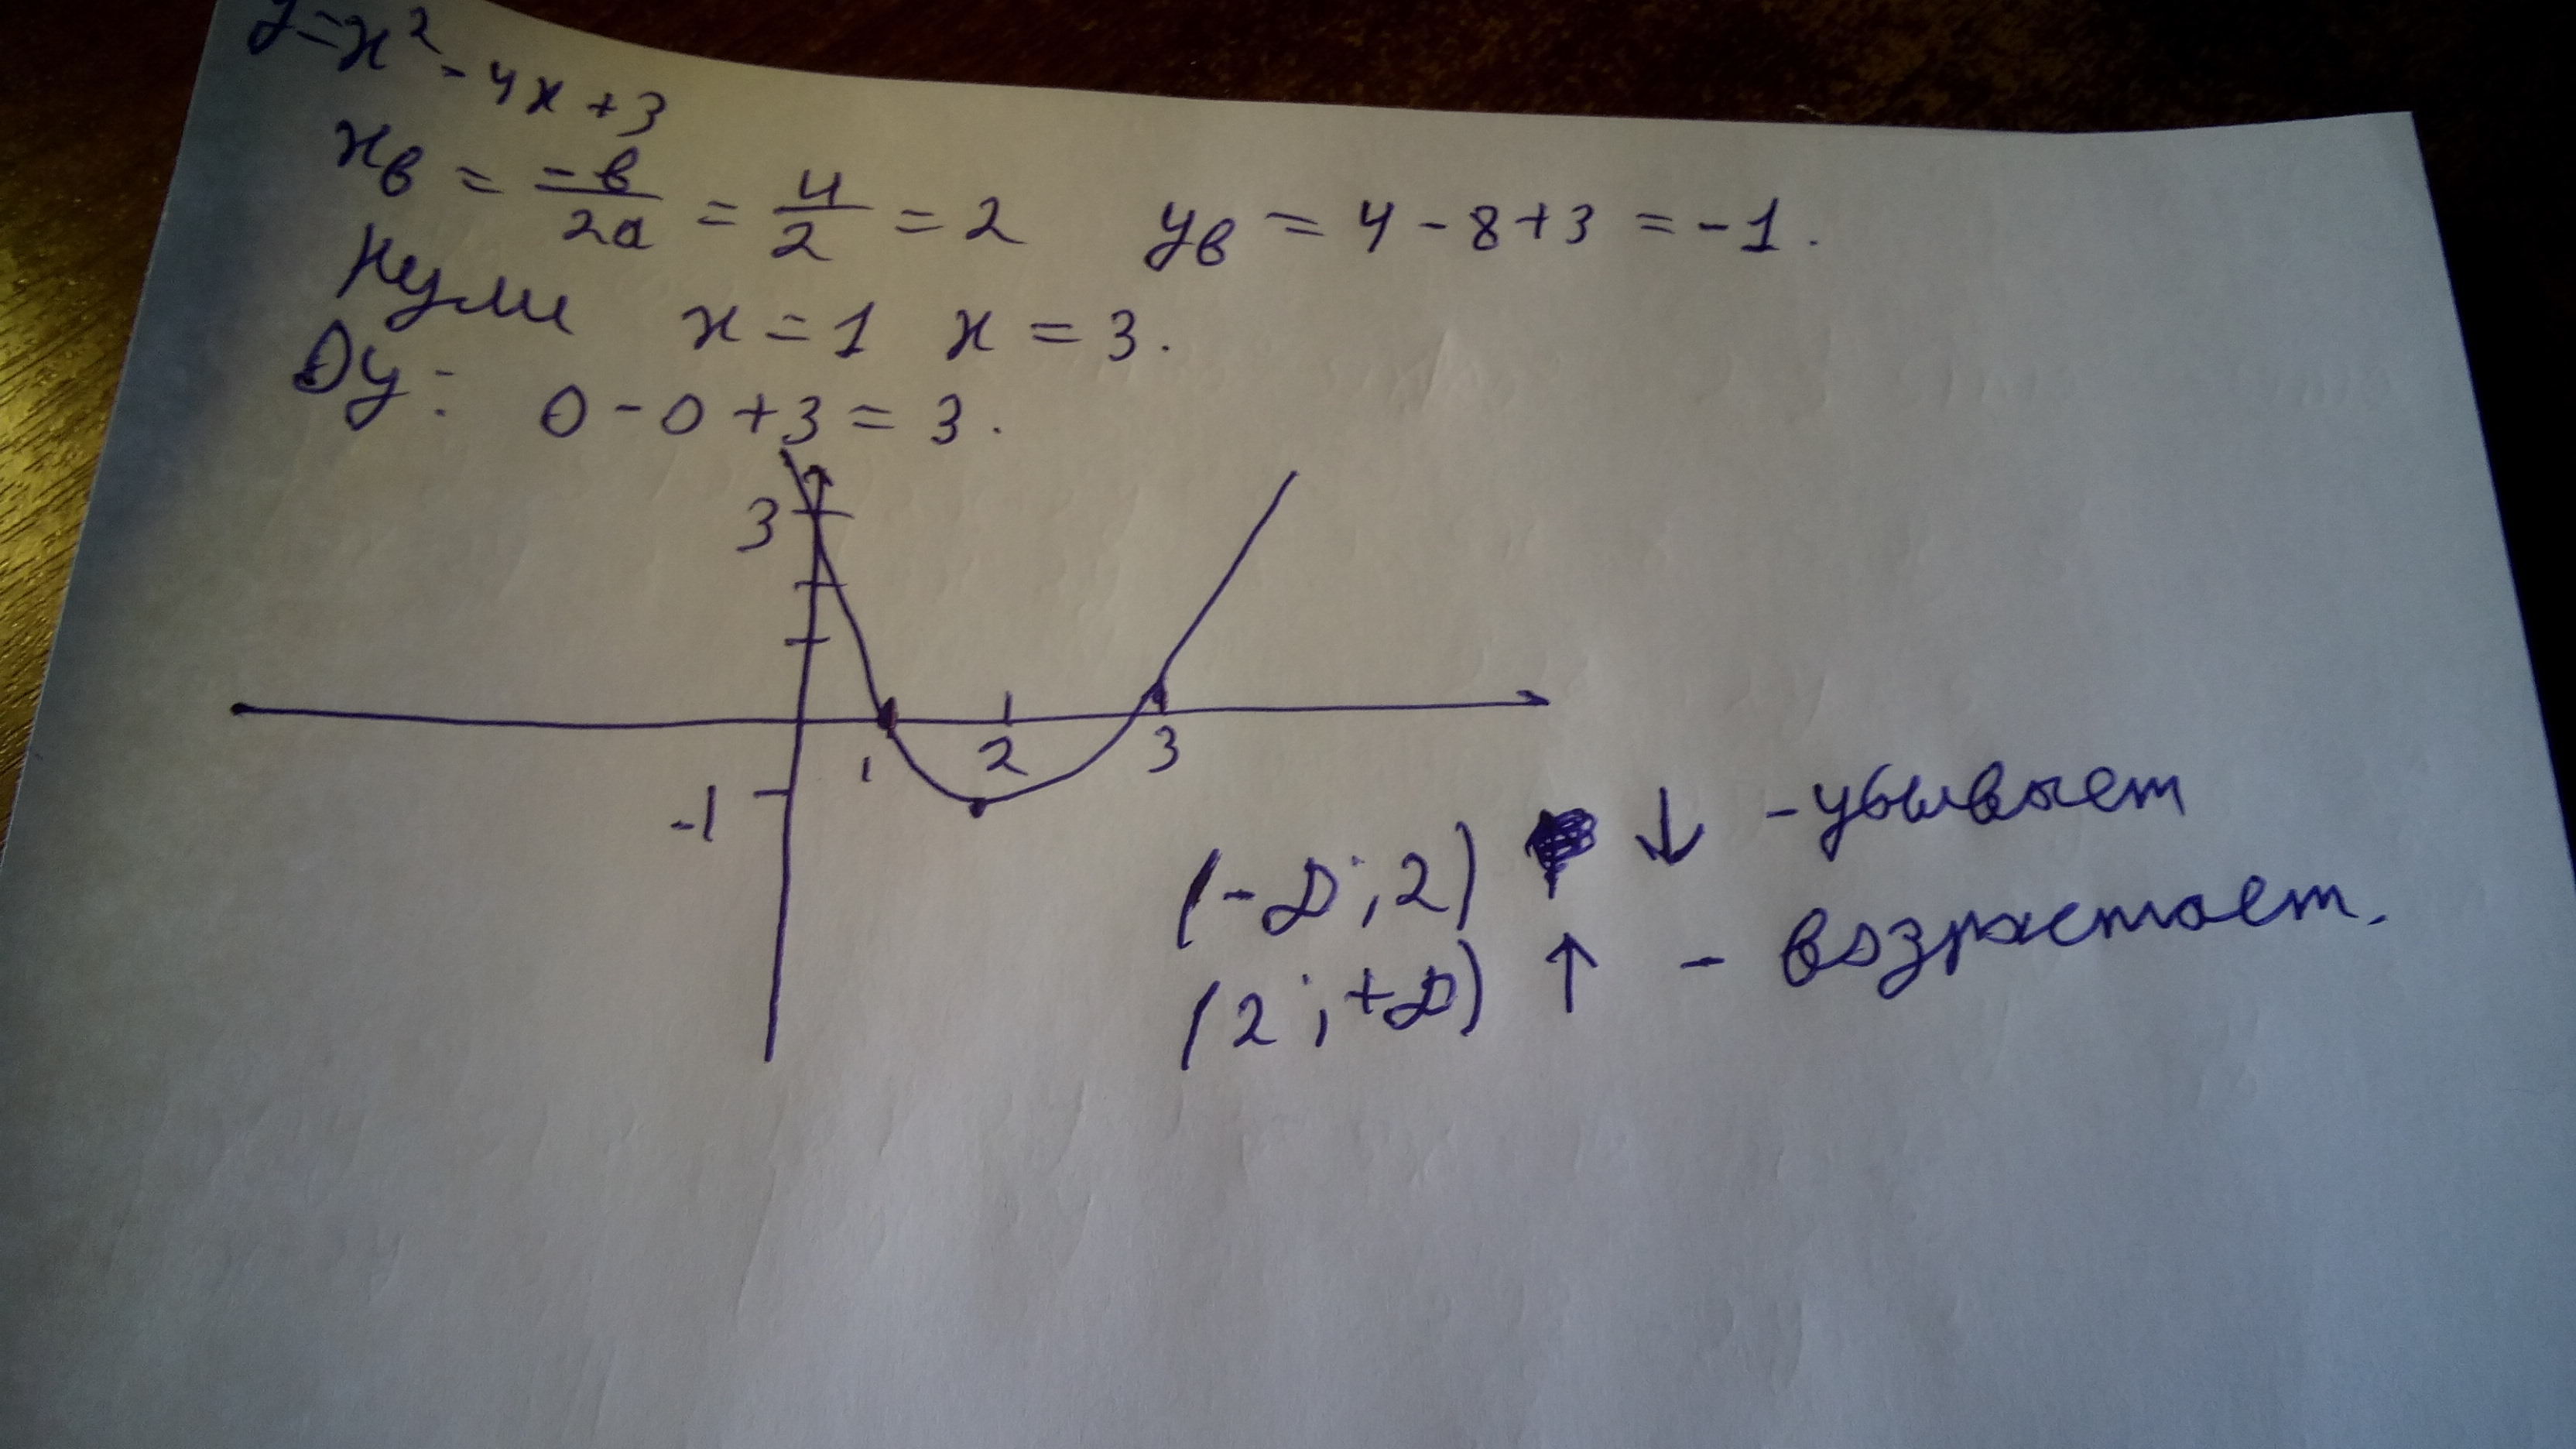 y=x² - 4x + 3
xв = -в/2a = 4/2 = 2 yв = 4 - 8 + 3 = -1.
Нули x = 1 x = 3.
Оу: 0 - 0 + 3 = 3.
3
1 2 3
-1
(-∞; 2) ↓ - убывает
(2; +∞) ↑ - возрастает.